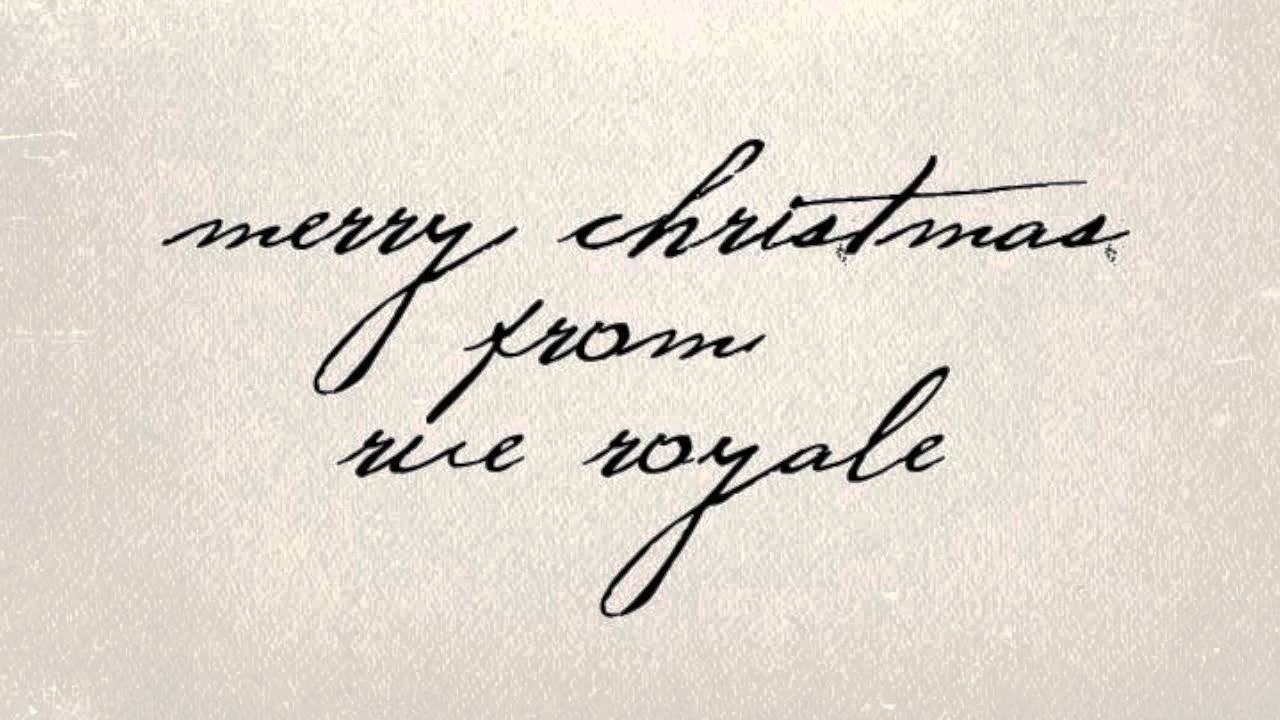 merry christmas
from
rue royale